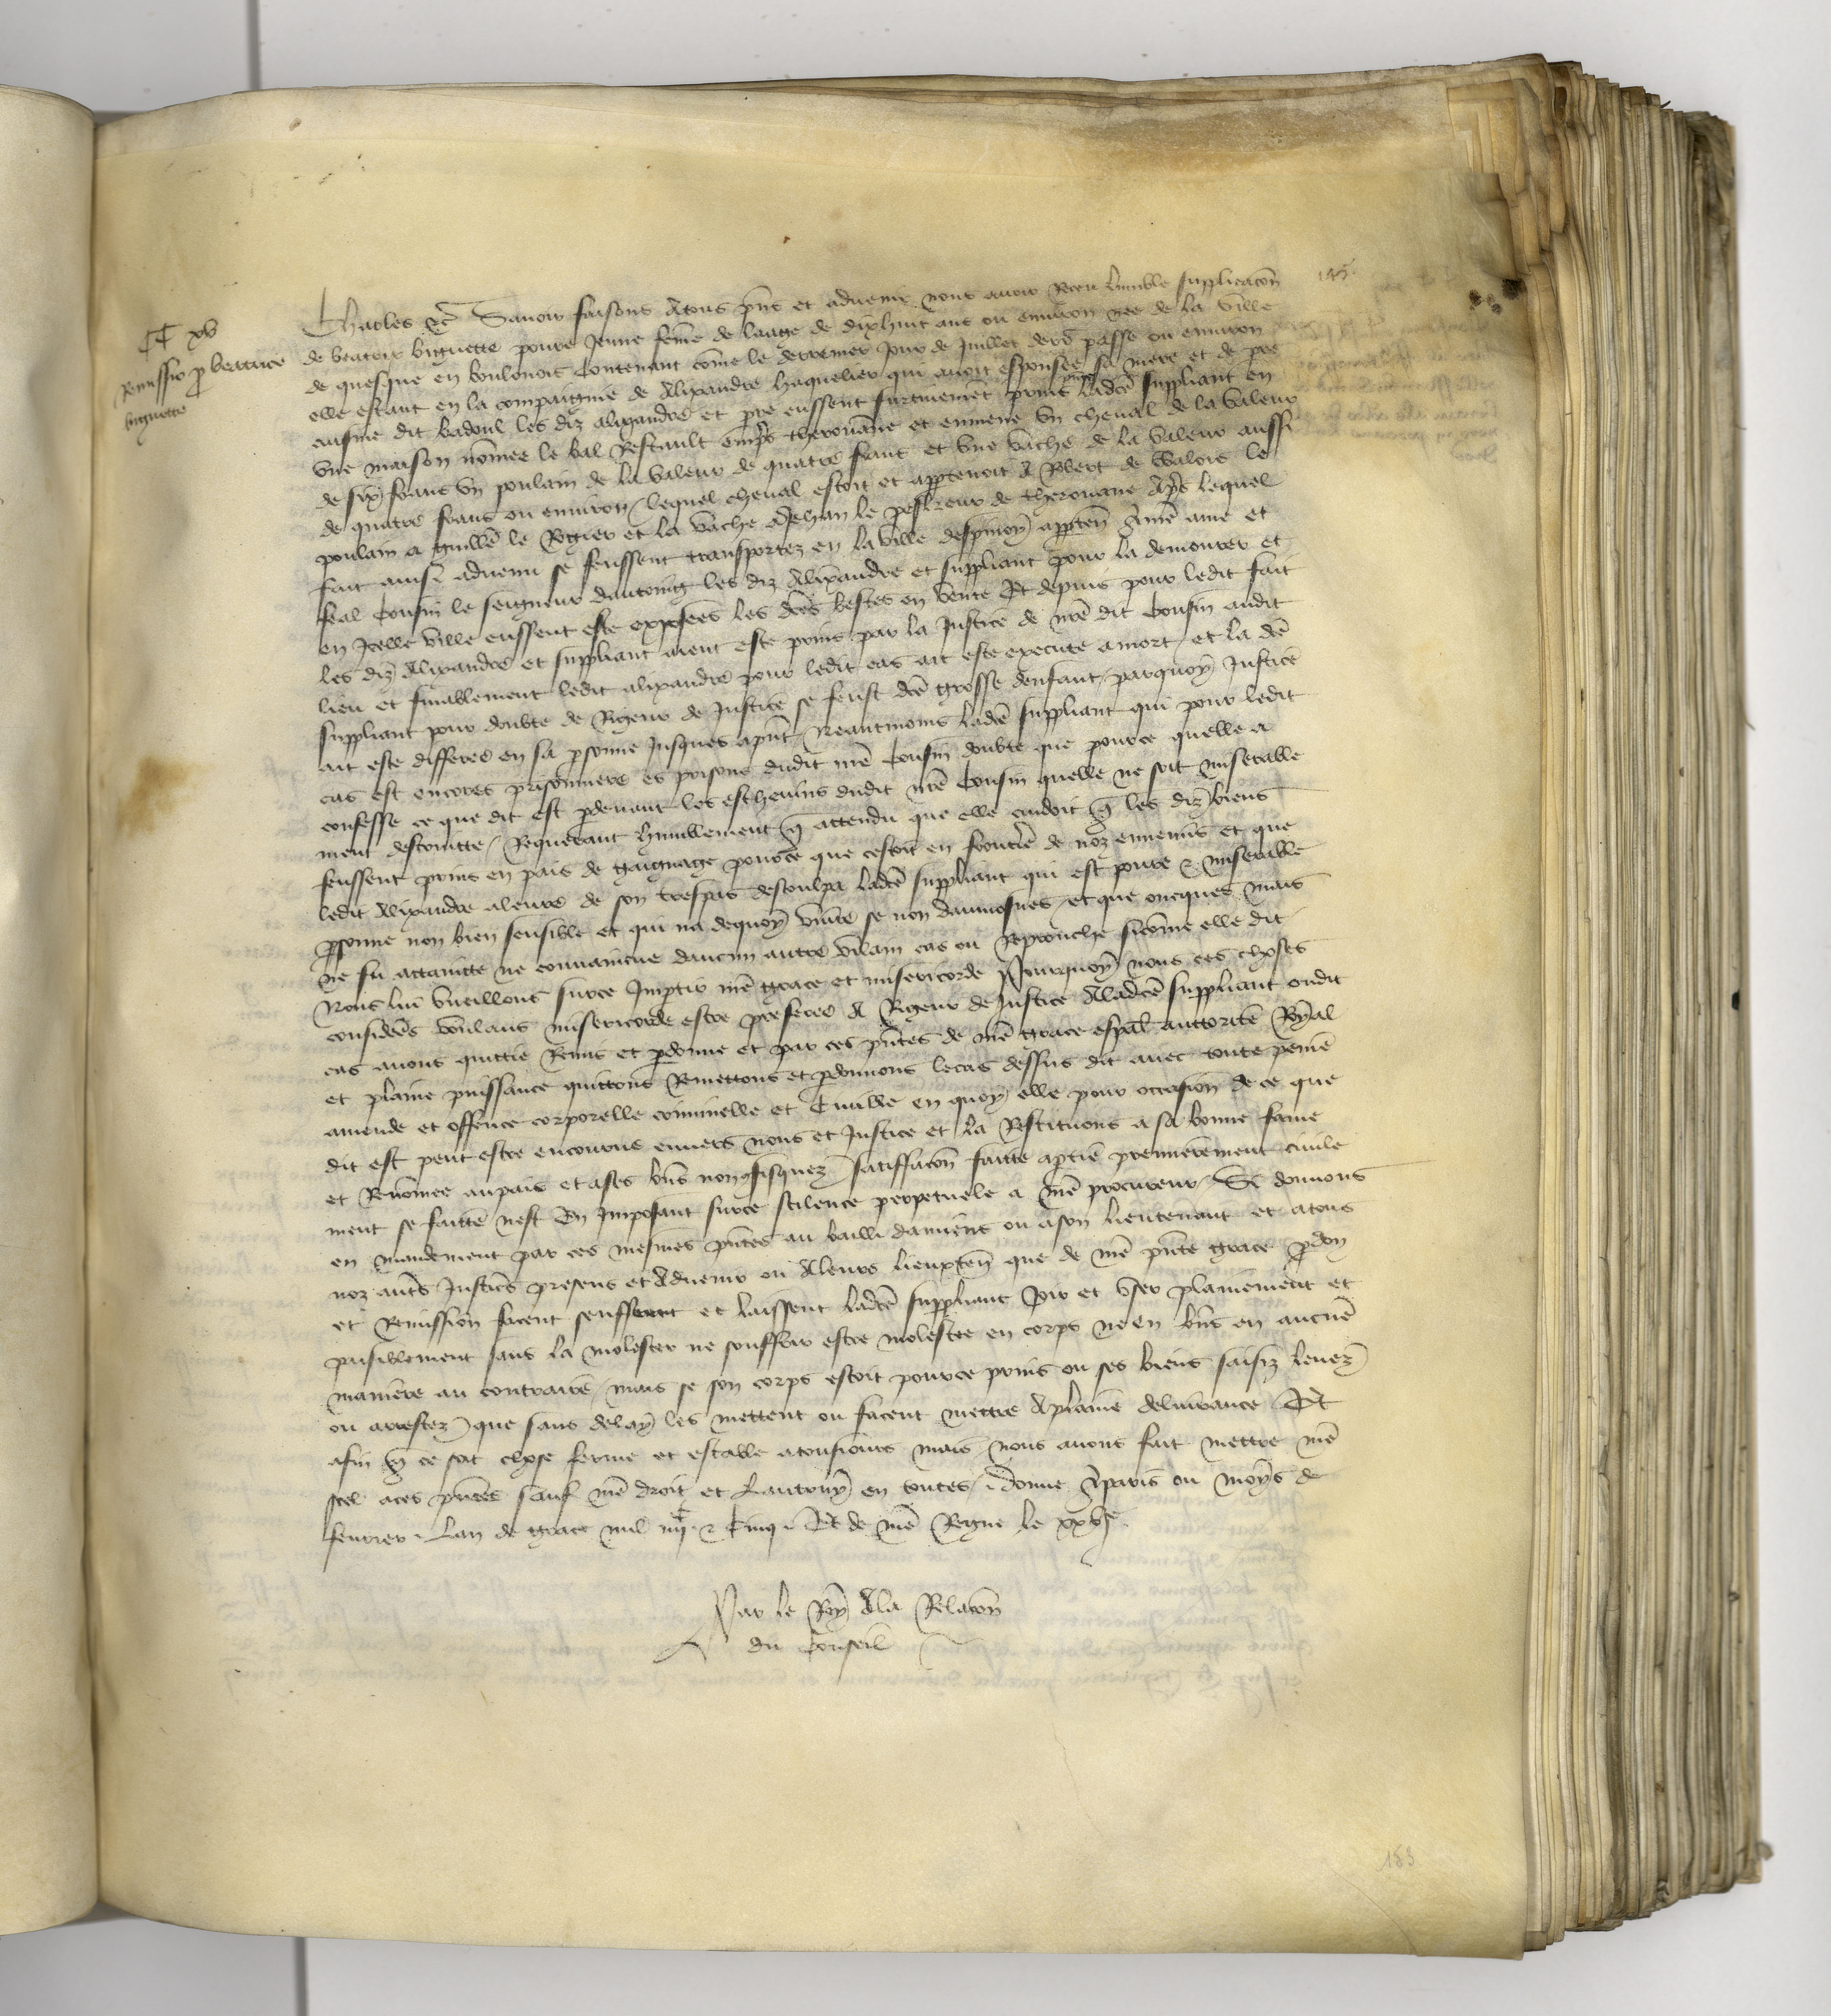 145
CC xv
Remissio p beatrice
biguette
Charles &c Savoir faisons Atous pns et advenir nous avoir Receu lumble supplicacon
de beatrix biguette povre Jeune feme de laage de dixhuit ans ou environ nee de la ville
de quesque en boulenois Contenant come le derrenier Jour de Juillet derr passe ou environ
elle estant en la compaignie de Alixandre haquelier qui avoit espousee sa mere et de pre
ausme dit badoul les diz alixandre et pre eussent furtivemet prins ladce suppliant en
une maison nomee le bal Restault empres therouane et enmene un cheval de la valeur
de six frans un poulain de la valeur de quatre frans et une vache de la valeur aussi
de quatre frans ou environ lequel cheval estoit et apptenoit A Robert de Walois le
poulain a guille le Rogier et la vache a Jehan le pestreur de therouane Apres lequel
fait ainsi advenu se feussent transportez en la ville despinoy apptem A nre ame et
feal Cousin le seigneur dantoing les diz Alixandre et suppliant pour la demourer et
en Icelle ville eussent este exposees les dces bestes en vente Et depuis pour ledit fait
les diz Alixandre et suppliant aient este prins par la Justice de nre dit Cousin audit
lieu et finablement ledit alixandre pour ledit cas ait este execute a mort et la dce
suppliant pour doubte de Rigeur de Justice se feust dce grosse denfant parquoy Justice
ait este differee en sa psonne Jusques apnt Neantmoins ladce suppliant qui pour ledit
cas est encores prisonniere es prisons dudit nre Cousin doubte que pource quelle a
confesse ce que dit est pdevant les eschevins dudit nre Cousin quelle ne soit miserable
ment descouitte Requerant humblement q attendu que elle cuidoit q les diz biens
feussent prins en pais de gaignage pource que cestoit en frontiere de noz ennemis et que
ledit Alixandre aleure de son trespas descoulpa ladce suppliant qui est povre & miserable
psonne non bien sensible et qui na dequoy vivre se non daumosnes et que oncques mais
ne fu attainte ne convaincue daucun autre vilain cas ou Reprouche sicome elle dit
Nous lui vueillons surce Impartir nre grace et misericorde Pourquoy nous ces choses
considerees voulans misericorde estre preferee A Rigeur de Justice Aladce suppliant oudit
cas avons quittie Remis et pdonne et par ces pntes de nre grace espal auttorite Royal
et plaine puissance quittons Remettons et pdonnons lecas dessus dit avec toute peine
amende et offence corporelle criminelle et Civille en quoy elle pour occasion de ce que
dit est peut estre encourue envers nous et Justice et la Restituons a sa bonne fame
et Renomee aupais et ases bns non ofisquez satiffacon faitte aptie premierement civile
ment se faitte nest En Imposant surce scilence perpetuele a nre procureur Si donnons
en mandement par ces mesmes pntes au bailli damiens ou ason lieutenant et atous
noz autes Justices presens et Advenir ou Aleurs lieuxten que de nre pnte grace pdon
et Remission facent seuffrent et laissent ladce suppliant Joir et user plainement et
paisiblement sans la molester ne souffrir estre molestee en corps ne en bns en aucune
maniere au contraire mais se son corps estoit pource prins ou ses biens saisiz levez
ou arrestez que sans delay les mettent ou facent mettre Aplaine delivrance Et
afin q ce soit chose ferme et estable atousiours mais nous avons fait mettre nre
scel aces pntes sauf nre droit et Lautruy en toutes donne A paris ou moys de
fevrier Lan de grace mil iiijc & Cinq Et de nre Regne le xxvje
Par le Roy Ala Relacon
du Conseil
153